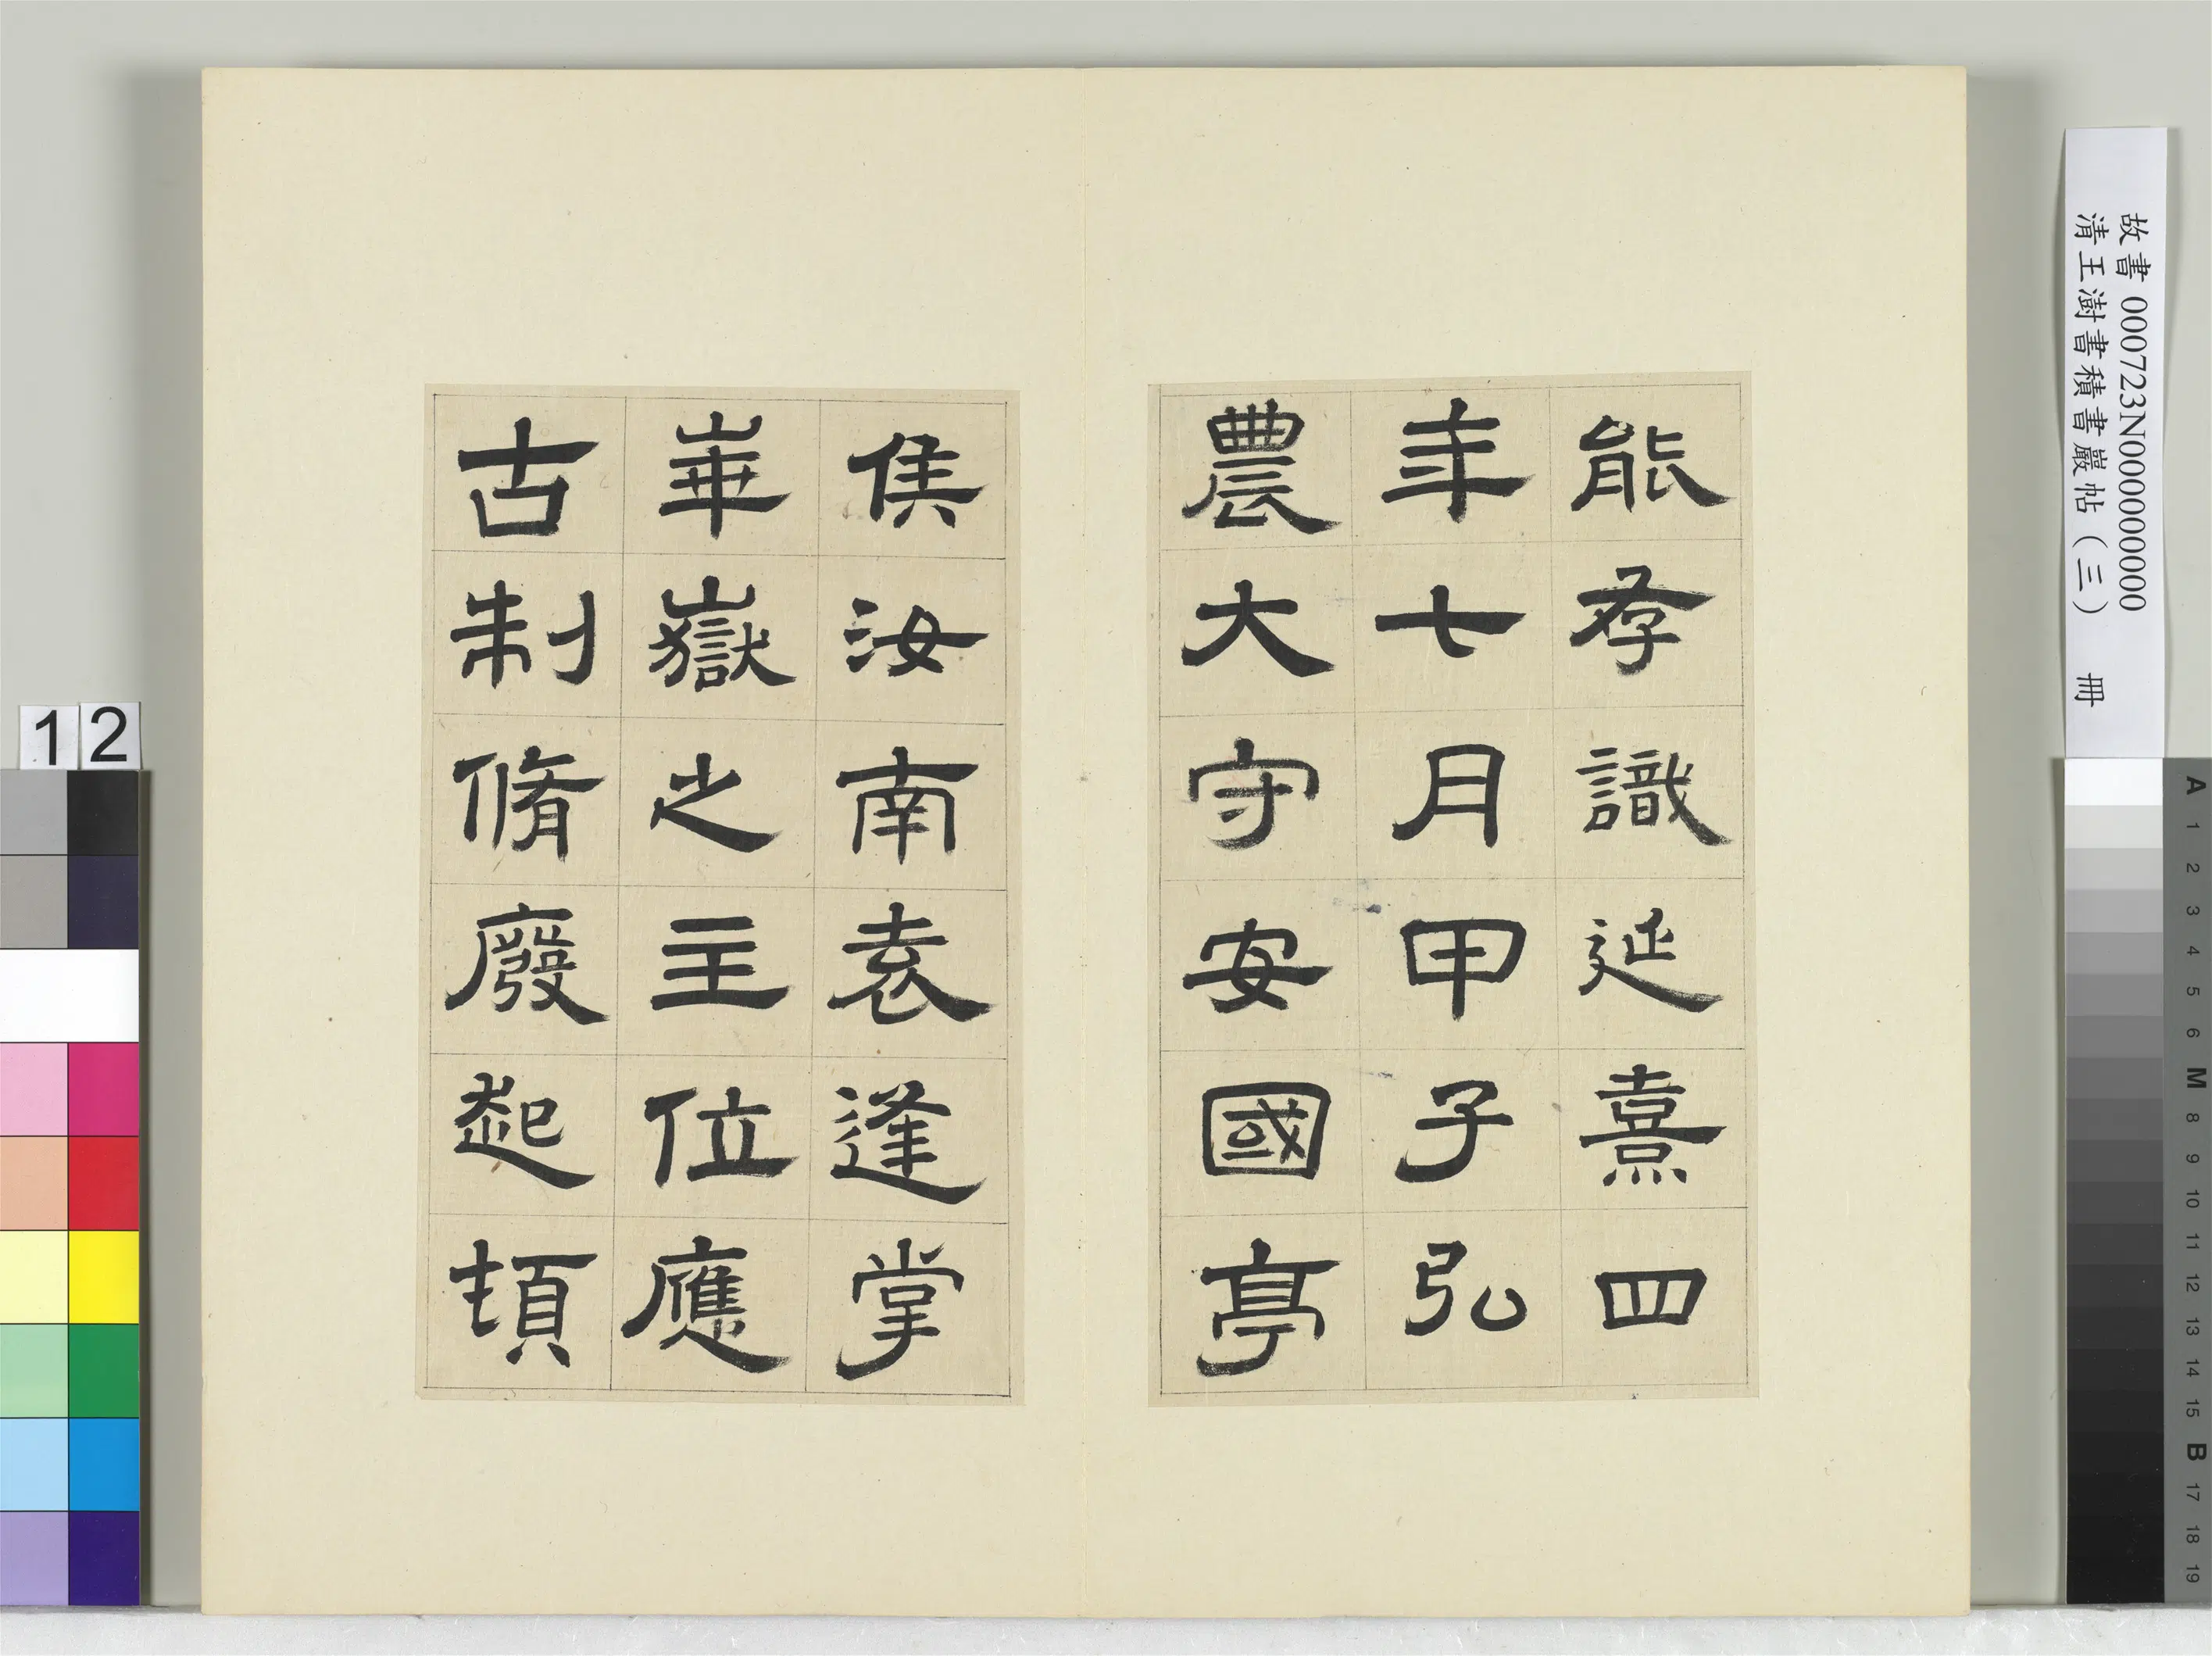 能存識延熹四
年七月甲子弘
農大守安國亭
侯汝南袁逢掌
華嶽之主位應
古制脩廢起頓
故書 000723N000000000
清王澍書積書巖帖（三） 冊
12
A 1 2 3 4 5 6 M 8 9 10 11 12 13 14 15 B 17 18 19